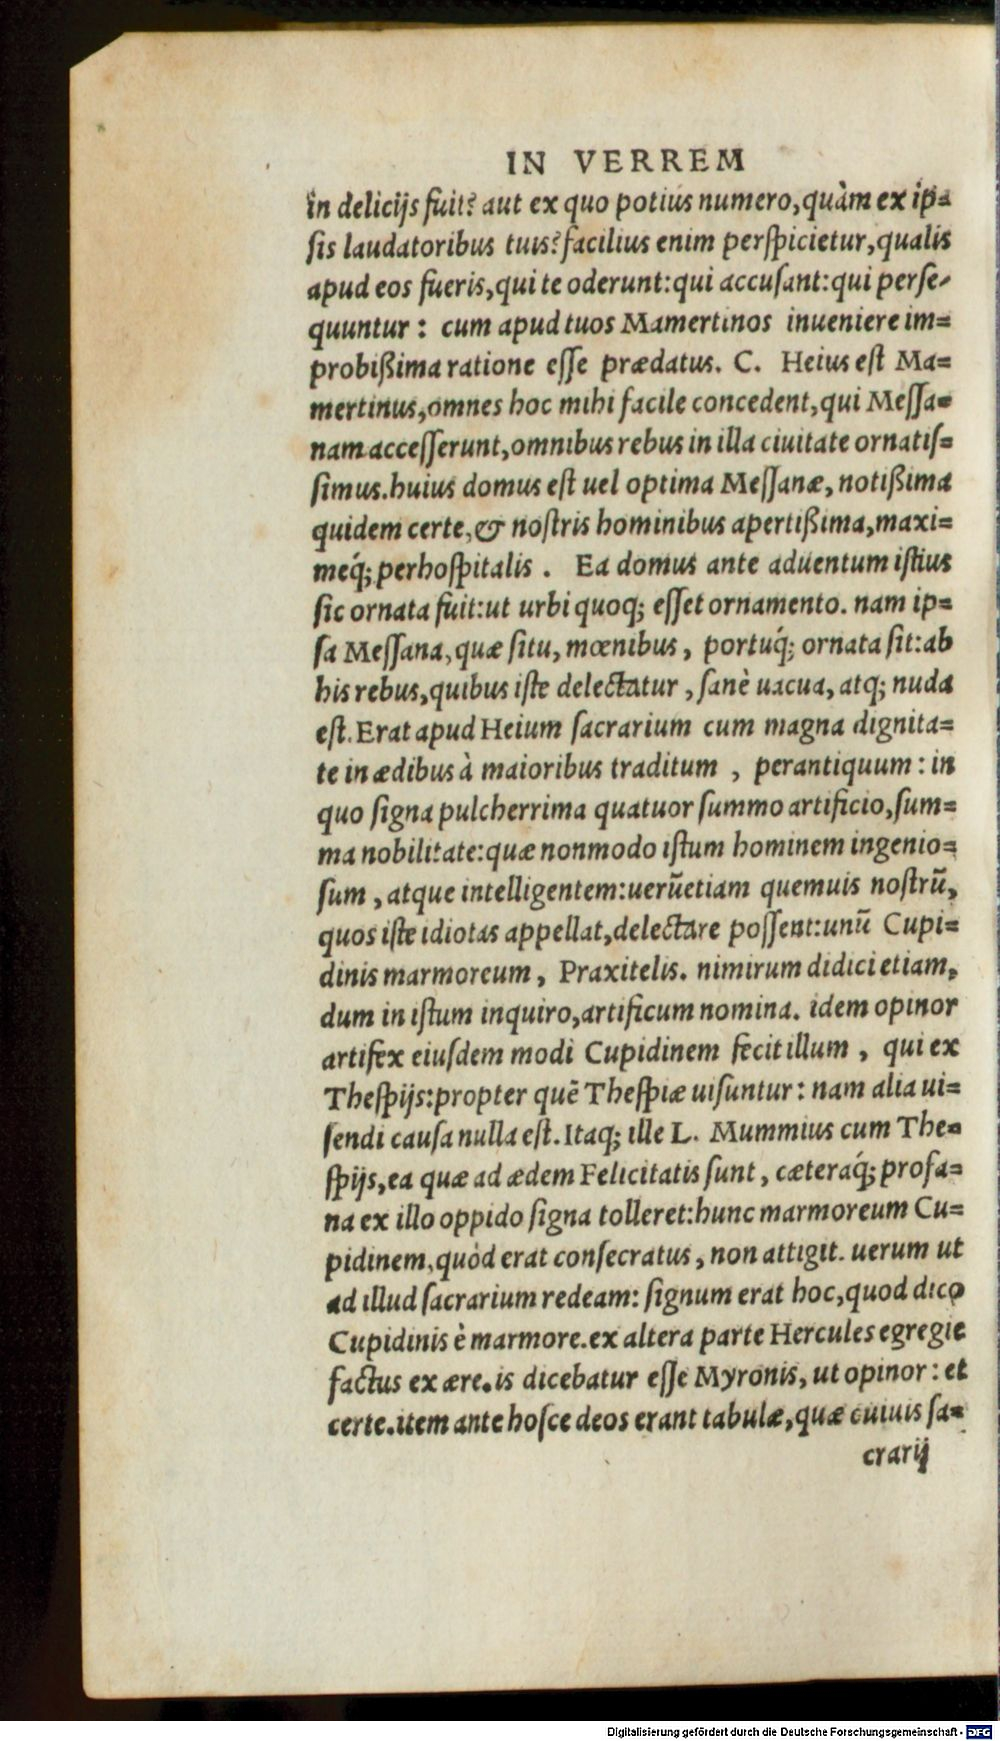 IN VERREM
in delicijs fuit? aut ex quo potius numero, quàm ex ip=
sis laudatoribus tuis? facilius enim perspicietur, qualis
apud eos fueris, qui te oderunt: qui accusant: qui perse-
quuntur: cum apud tuos Mamertinos inueniere im=
probißima ratione esse prædatus. C. Heius est Ma=
mertinus, omnes hoc mihi facile concedent, qui Messa=
nam accesserunt, omnibus rebus in illa ciuitate ornatis=
simus. huius domus est uel optima Messanæ, notißima
quidem certe, & nostris hominibus apertißima, maxi=
meq́; perhospitalis. Ea domus ante aduentum istius
sic ornata fuit: ut urbi quoq; esset ornamento. nam ip=
sa Messana, quæ situ, mœnibus, portuq́; ornata sit: ab
his rebus, quibus iste delectatur, sanè uacua, atq; nuda
est. Erat apud Heium sacrarium cum magna dignita=
te in ædibus à maioribus traditum, perantiquum: in
quo signa pulcherrima quatuor summo artificio, sum=
ma nobilitate: quæ nonmodo istum hominem ingenio=
sum, atque intelligentem: uerũetiam quemuis nostrũ,
quos iste idiotas appellat, delectare possent: unũ Cupi=
dinis marmoreum, Praxitelis. nimirum didici etiam,
dum in istum inquiro, artificum nomina. idem opinor
artifex eiusdem modi Cupidinem fecit illum, qui ex
Thespijs: propter quẽ Thespiæ uisuntur: nam alia ui=
sendi causa nulla est. Itaq; ille L. Mummius cum The=
spijs, ea quæ ad ædem Felicitatis sunt, cæteraq́; profa=
na ex illo oppido signa tolleret: hunc marmoreum Cu=
pidinem, quòd erat consecratus, non attigit. uerum ut
ad illud sacrarium redeam: signum erat hoc, quod dico
Cupidinis è marmore. ex altera parte Hercules egregie
factus ex ære. is dicebatur esse Myronis, ut opinor: et
certe. item ante hosce deos erant tabulæ, quæ cuiuis sa=
crarij
Digitalisierung gefördert durch die Deutsche Forschungsgemeinschaft - DFG